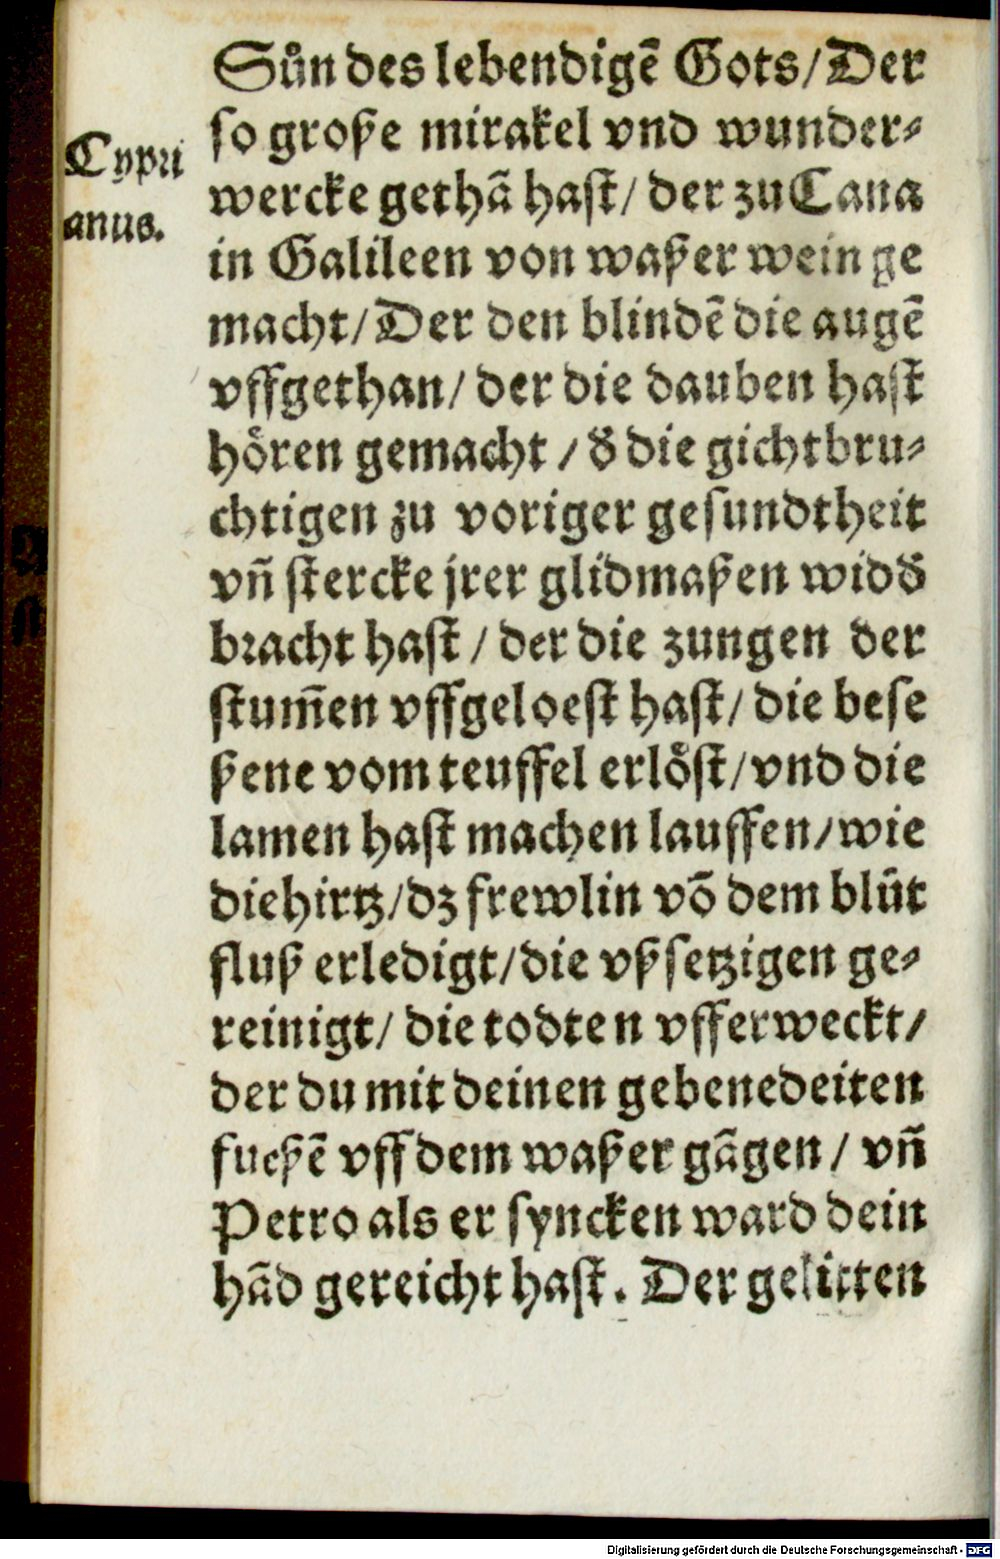 Cypri
anus.
Sůn des lebendigē Gots/Der
so große mirakel vnd wunder⸗
wercke gethā hast/ der zu Cana
in Galileen von waßer wein ge
macht/Der den blindē die augē
vffgethan/ der die dauben hast
hören gemacht / d̕ die gichtbru⸗
chtigen zu voriger gesundtheit
vñ stercke jrer glidmaßen widd̕
bracht hast / der die zungen der
stum̄en vffgeloest hast/ die bese
ßene vom teuffel erlöst/vnd die
lamen hast machen lauffen/wie
die hirtz/dz frewlin vō dem blůt
fluß erledigt/die vßsetzigen ge⸗
reinigt/ die todten vfferweckt/
der du mit deinen gebenedeiten
fueßē vff dem waßer gāgen / vñ
Petro als er syncken ward dein
hād gereicht hast. Der gelitten
Digitalisierung gefördert durch die Deutsche Forschungsgemeinschaft - DFG